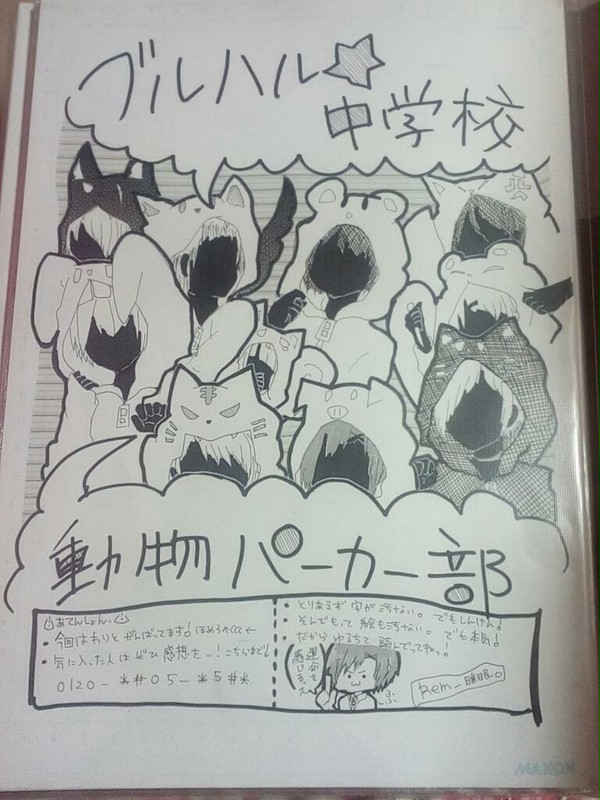 ブルハル☆
中学校
動物パーカー部
あてんしょん
・今回はわりとがんばってます! ほめろやCCC←
・気に入った人はぜひ感想を…! こちらまで↓
0120-*#05-*5#*
・とりあえず字が汚ない。でもしんけん!
・そんでもって絵も汚ない。でも本気!
だからゆるちて 読んでってねっ。!
運命を
感じるぜ
ふふ
Rem_睡眠。
MAXON